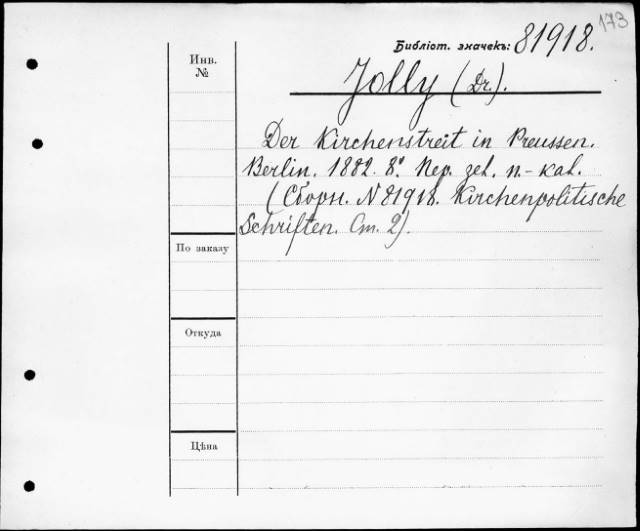 173
Библіот. значекъ: 81918.
Инв.
№
Jolly (Dr.).
Der Kirchenstreit in Preussen.
Berlin. 1882. 8º. Пер. zel. п.-kal.
(Сборн. N 81918. Kirchenpolitische
Schriften. Ст. 2).
По заказу
Откуда
Цѣна